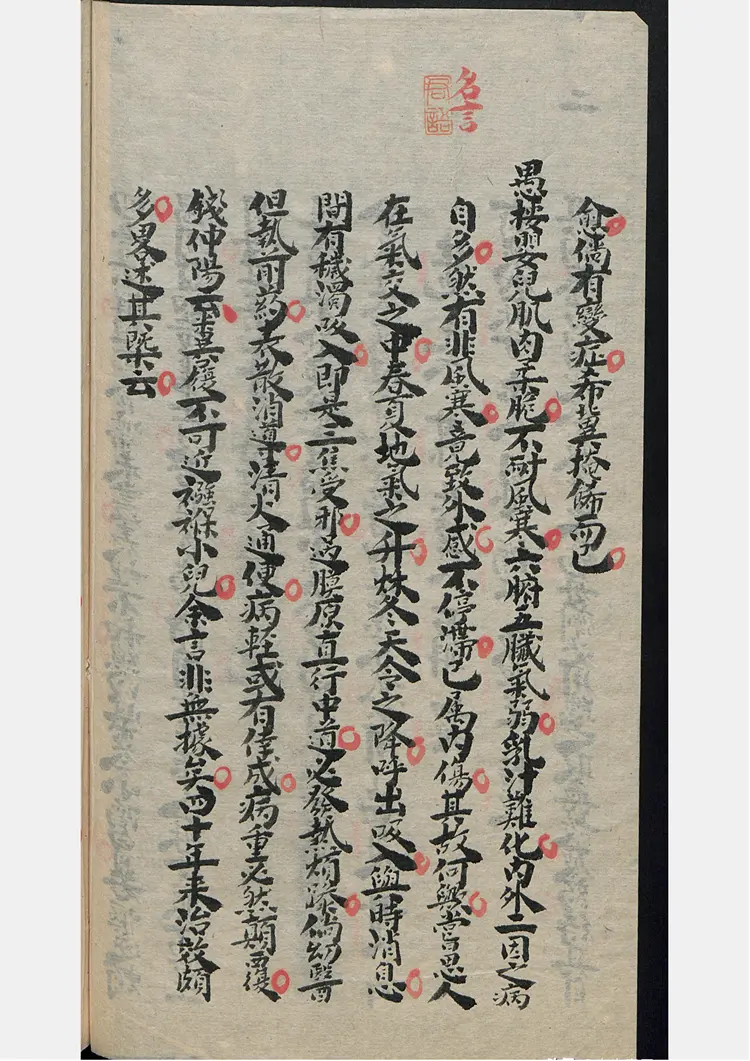 名言
愈倘有變症希冀掩飾而已
愚按嬰兒肌肉柔脆不耐風寒六腑五臟氣弱乳汁難化內外二因之病
自多然有非風寒竟致外感不停滯已属內傷其故何歟嘗思人
在氣交之中春夏地氣之升秋冬天令之降呼出吸入與時消息
間有穢濁吸入即是三焦受邪過膜原直行中道必發熱煩躁倘幼醫
但執前药表散消導清火通便病輕或有僥成病重必然顛覆
錢仲陽云糞履不可近襁褓小兒余言非無據矣四十年來治效頗
多畧述其槩云